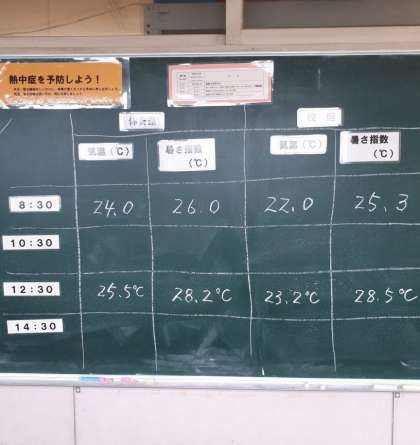 熱中症を予防しよう！
体育館
校庭
気温（℃）
暑さ指数（℃）
気温（℃）
暑さ指数（℃）
8:30 24.0 26.0 22.0 25.3
10:30
12:30 25.5℃ 28.2℃ 23.2℃ 28.5℃
14:30